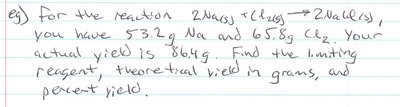 eg) For the reaction 2Na(s) + Cl₂(g) → 2NaCl(s),
you have 53.2g Na and 65.8g Cl₂. Your
actual yield is 86.4g. Find the limiting
reagent, theoretical yield in grams, and
percent yield.